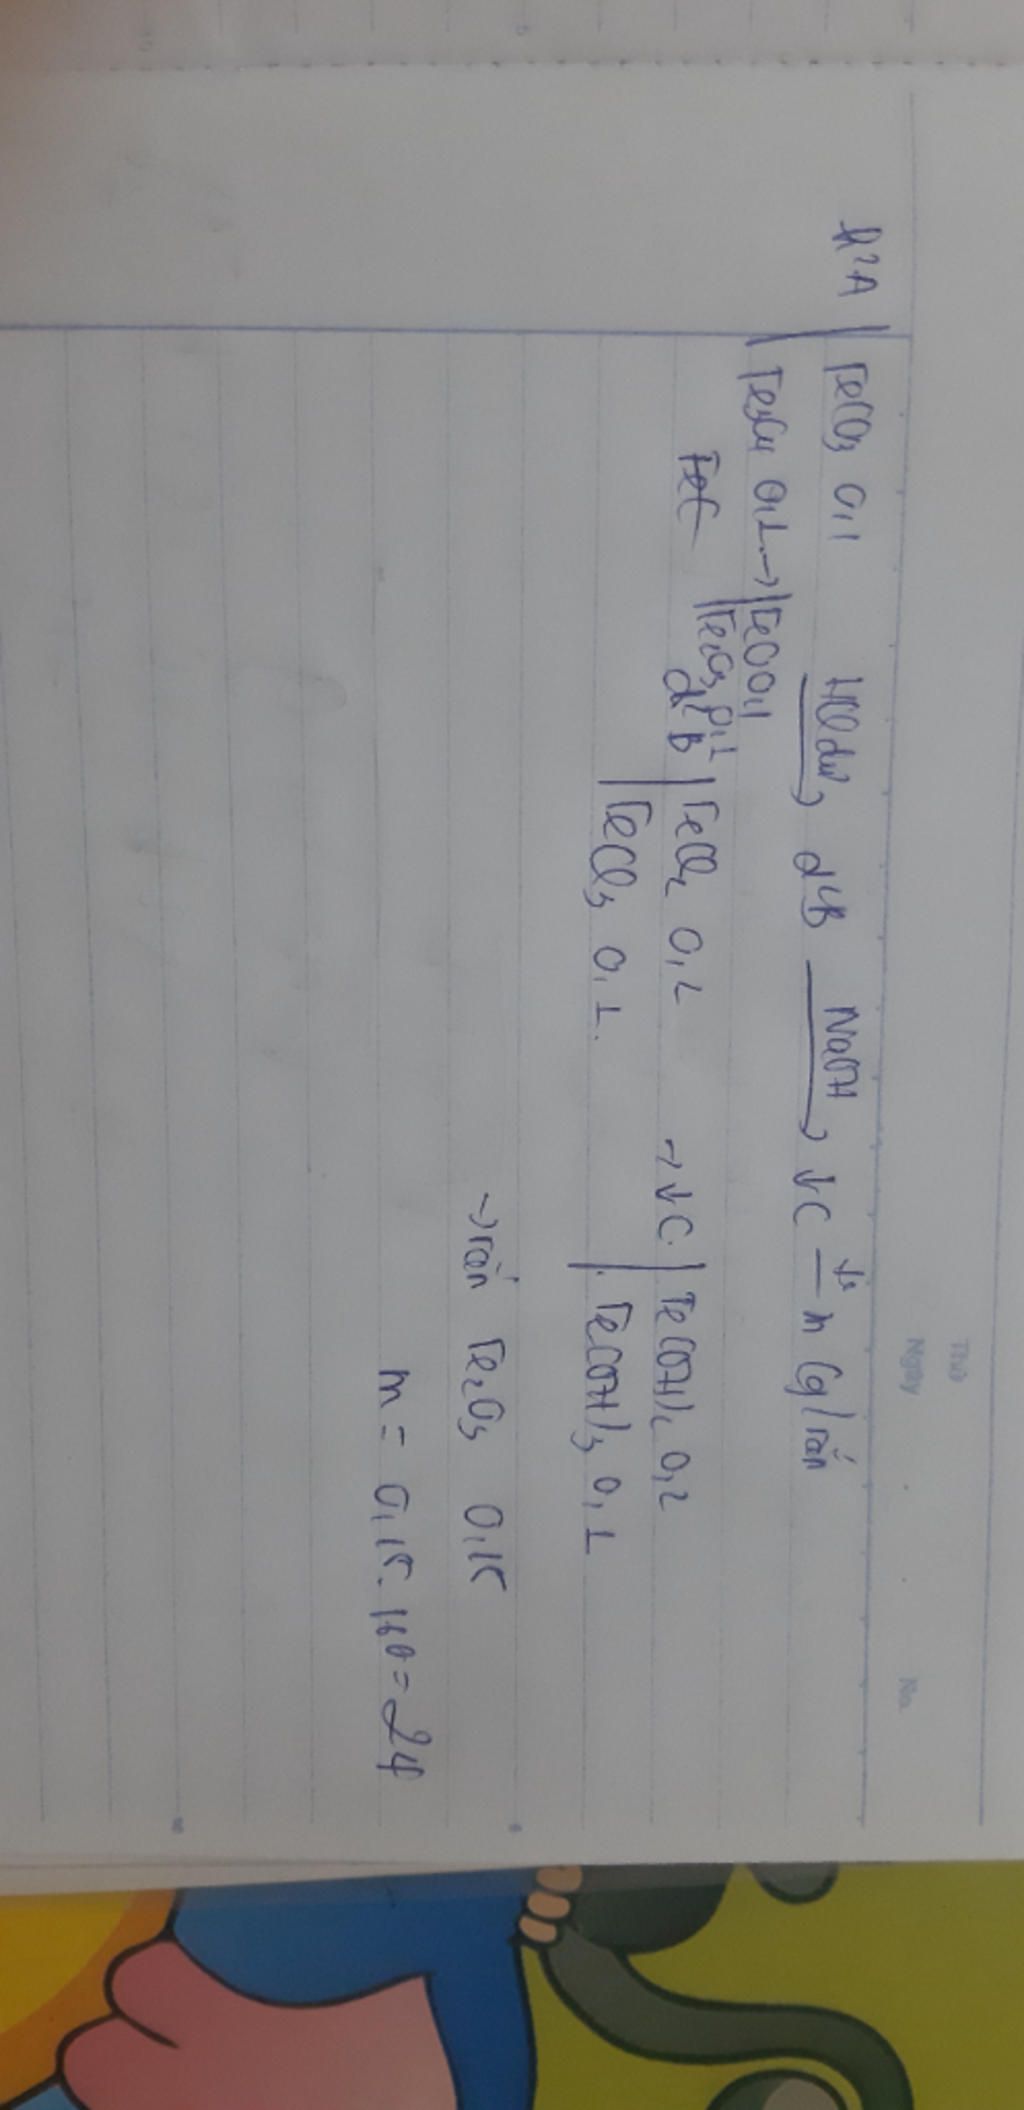 Thứ
Ngày No.
h² A | FeCO3 0,1 HCl dư → d² B NaOH → ↓C t° — m (g) rắn
| Fe3O4 0,1 → | FeO 0,1
| Fe2O3 0,1
d² B | FeCl2 0,2 → ↓C | Fe(OH)2 0,2
| FeCl3 0,2 | Fe(OH)3 0,1
→ rắn Fe2O3 0,15
m = 0,15.160 = 24
5
10